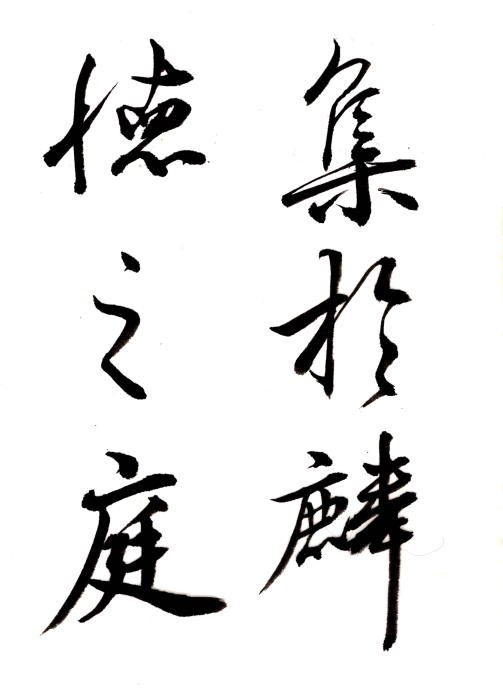 集於麟
德之庭